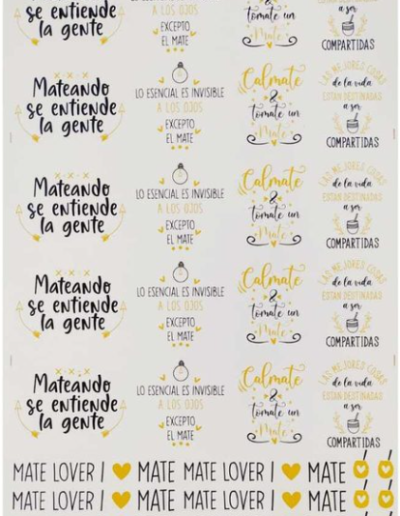 se entiende
la gente
A LOS OJOS
EXCEPTO
EL MATE
&
tomate un
Mate
a ser
COMPARTIDAS
Mateando
se entiende
la gente
LO ESENCIAL ES INVISIBLE
A LOS OJOS
EXCEPTO
EL MATE
Calmate
&
tomate un
Mate
LAS MEJORES COSAS
de la vida
ESTAN DESTINADAS
a ser
COMPARTIDAS
Mateando
se entiende
la gente
LO ESENCIAL ES INVISIBLE
A LOS OJOS
EXCEPTO
EL MATE
Calmate
&
tomate un
Mate
LAS MEJORES COSAS
de la vida
ESTAN DESTINADAS
a ser
COMPARTIDAS
Mateando
se entiende
la gente
LO ESENCIAL ES INVISIBLE
A LOS OJOS
EXCEPTO
EL MATE
Calmate
&
tomate un
Mate
LAS MEJORES COSAS
de la vida
ESTAN DESTINADAS
a ser
COMPARTIDAS
Mateando
se entiende
la gente
LO ESENCIAL ES INVISIBLE
A LOS OJOS
EXCEPTO
EL MATE
Calmate
&
tomate un
Mate
LAS MEJORES COSAS
de la vida
ESTAN DESTINADAS
a ser
COMPARTIDAS
MATE LOVER I MATE MATE LOVER I MATE
MATE LOVER I MATE MATE LOVER I MATE